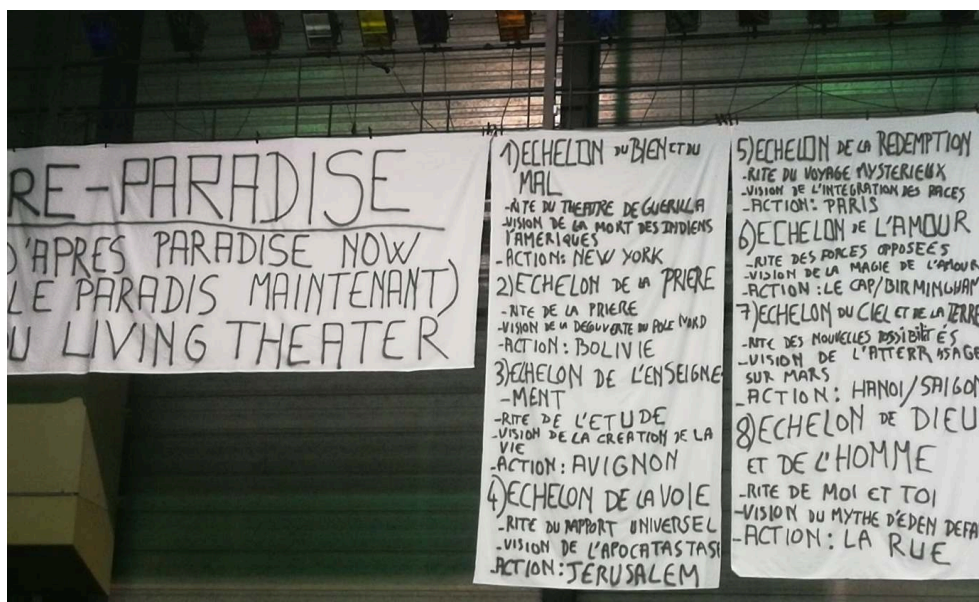 RE-PARADISE
D'APRES PARADISE NOW
LE PARADIS MAINTENANT)
U LIVING THEATER
1) ECHELON DU BIEN ET DU
MAL
-RITE DU THEATRE DE GUERILLA
-VISION DE LA MORT DES INDIENS
D'AMERIQUES
-ACTION: NEW YORK
2) ECHELON DE LA PRIERE
-RITE DE LA PRIERE
-VISION DE LA DECOUVERTE DU POLE NORD
-ACTION: BOLIVIE
3) ECHELON DE L'ENSEIGNE-
-MENT
-RITE DE L'ETUDE
-VISION DE LA CREATION DE LA
VIE
-ACTION: AVIGNON
4) ECHELON DE LA VOIE
-RITE DU RAPPORT UNIVERSEL
-VISION DE L'APOCATASTASE
-ACTION: JERUSALEM
5) ECHELON DE LA REDEMPTION
-RITE DU VOYAGE MYSTERIEUX
-VISION DE L'INTEGRATION DES RACES
-ACTION: PARIS
6) ECHELON DE L'AMOUR
-RITE DES FORCES OPPOSEES
-VISION DE LA MAGIE DE L'AMOUR
-ACTION: LE CAP/BIRMINGHAM
7) ECHELON DU CIEL ET DE LA TERRE
-RITE DES NOUVELLES POSSIBILITES
-VISION DE L'ATTERRISSAGE
SUR MARS
-ACTION: HANOI/SAIGON
8) ECHELON DE DIEU
ET DE L'HOMME
-RITE DE MOI ET TOI
-VISION DU MYTHE D'EDEN DEFA
-ACTION: LA RUE